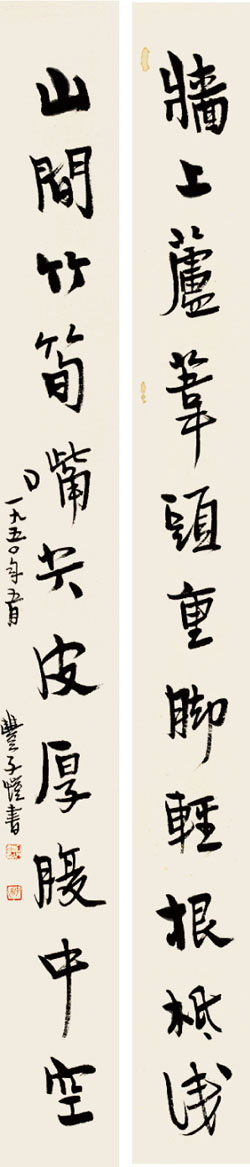 牆上蘆葦頭重脚輕根柢浅
山間竹筍嘴尖皮厚腹中空
一九五〇年五月 豐子愷書